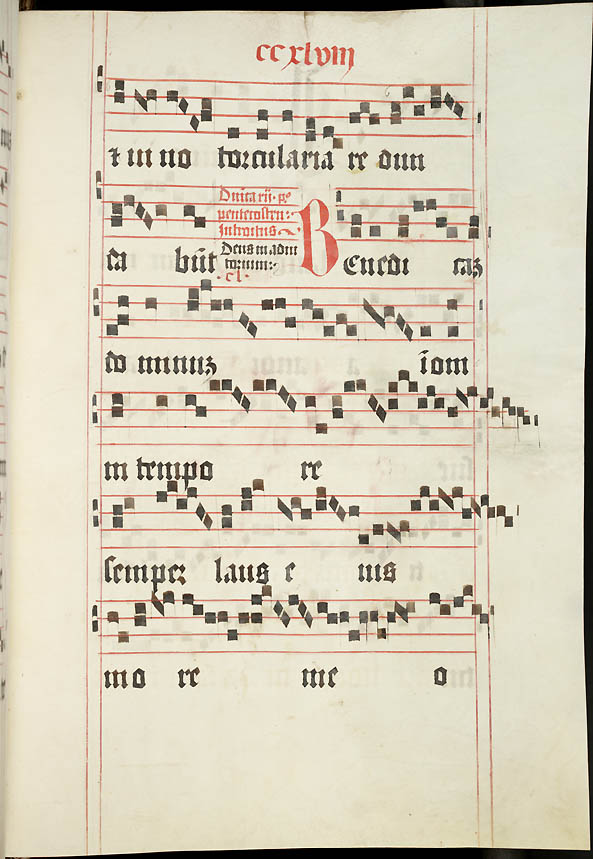 ccxlviij
⁊ ui no torcularia re dun
Dn̄ica xii. pꝰ
pentecosten:
Introitus
Deus in adiu
torium:
.cl.
da būt Benedi caꝫ
do minuꝫ ī om
ni tempo re
semper laus e ius
in o re me o